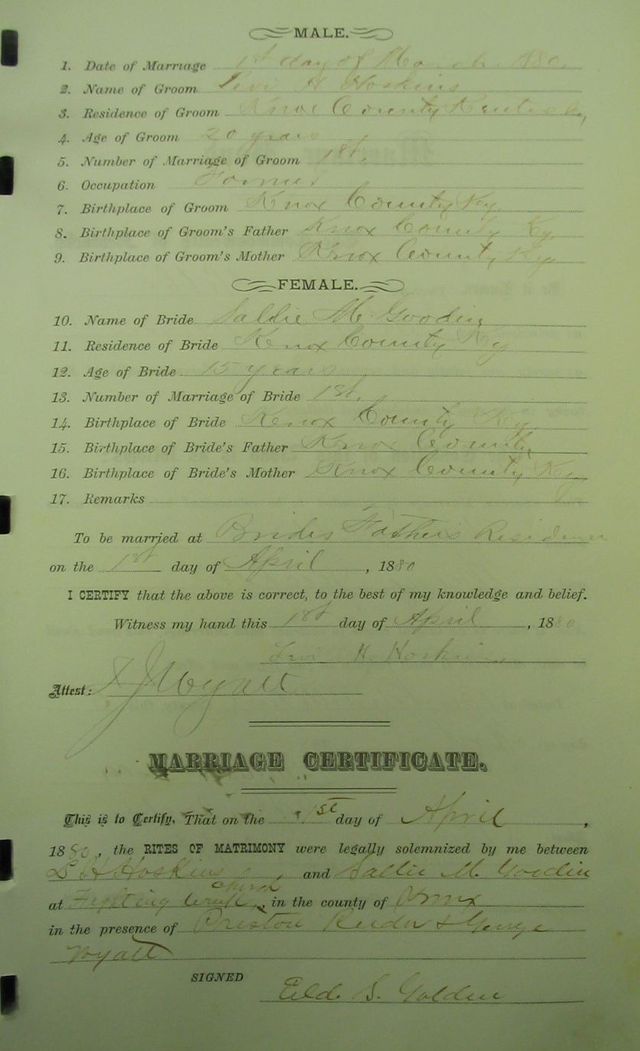 MALE.
1. Date of Marriage 1st day of March 1880
2. Name of Groom Levi H Hoskins
3. Residence of Groom Knox County Kentucky
4. Age of Groom 20 years
5. Number of Marriage of Groom 1st.
6. Occupation Farmer
7. Birthplace of Groom Knox County Ky
8. Birthplace of Groom's Father Knox County Ky.
9. Birthplace of Groom's Mother Knox County Ky
FEMALE.
10. Name of Bride Sallie M. Goodin
11. Residence of Bride Knox County Ky
12. Age of Bride 15 years
13. Number of Marriage of Bride 1st.
14. Birthplace of Bride Knox County Ky.
15. Birthplace of Bride's Father Knox County
16. Birthplace of Bride's Mother Knox County Ky
17. Remarks
To be married at Brides Fathers Residence
on the 1st day of April, 1880
I CERTIFY that the above is correct, to the best of my knowledge and belief.
Witness my hand this 1st day of April, 1880
Levi H. Hoskins
Attest: Wyatt
MARRIAGE CERTIFICATE.
This is to Certify, That on the 1st day of April,
1880, the RITES OF MATRIMONY were legally solemnized by me between
L H Hoskins, and Sallie M. Goodin
at Fighting Creek church, in the county of Knox
in the presence of Preston & George
Wyatt
SIGNED
Eld. S. Golden